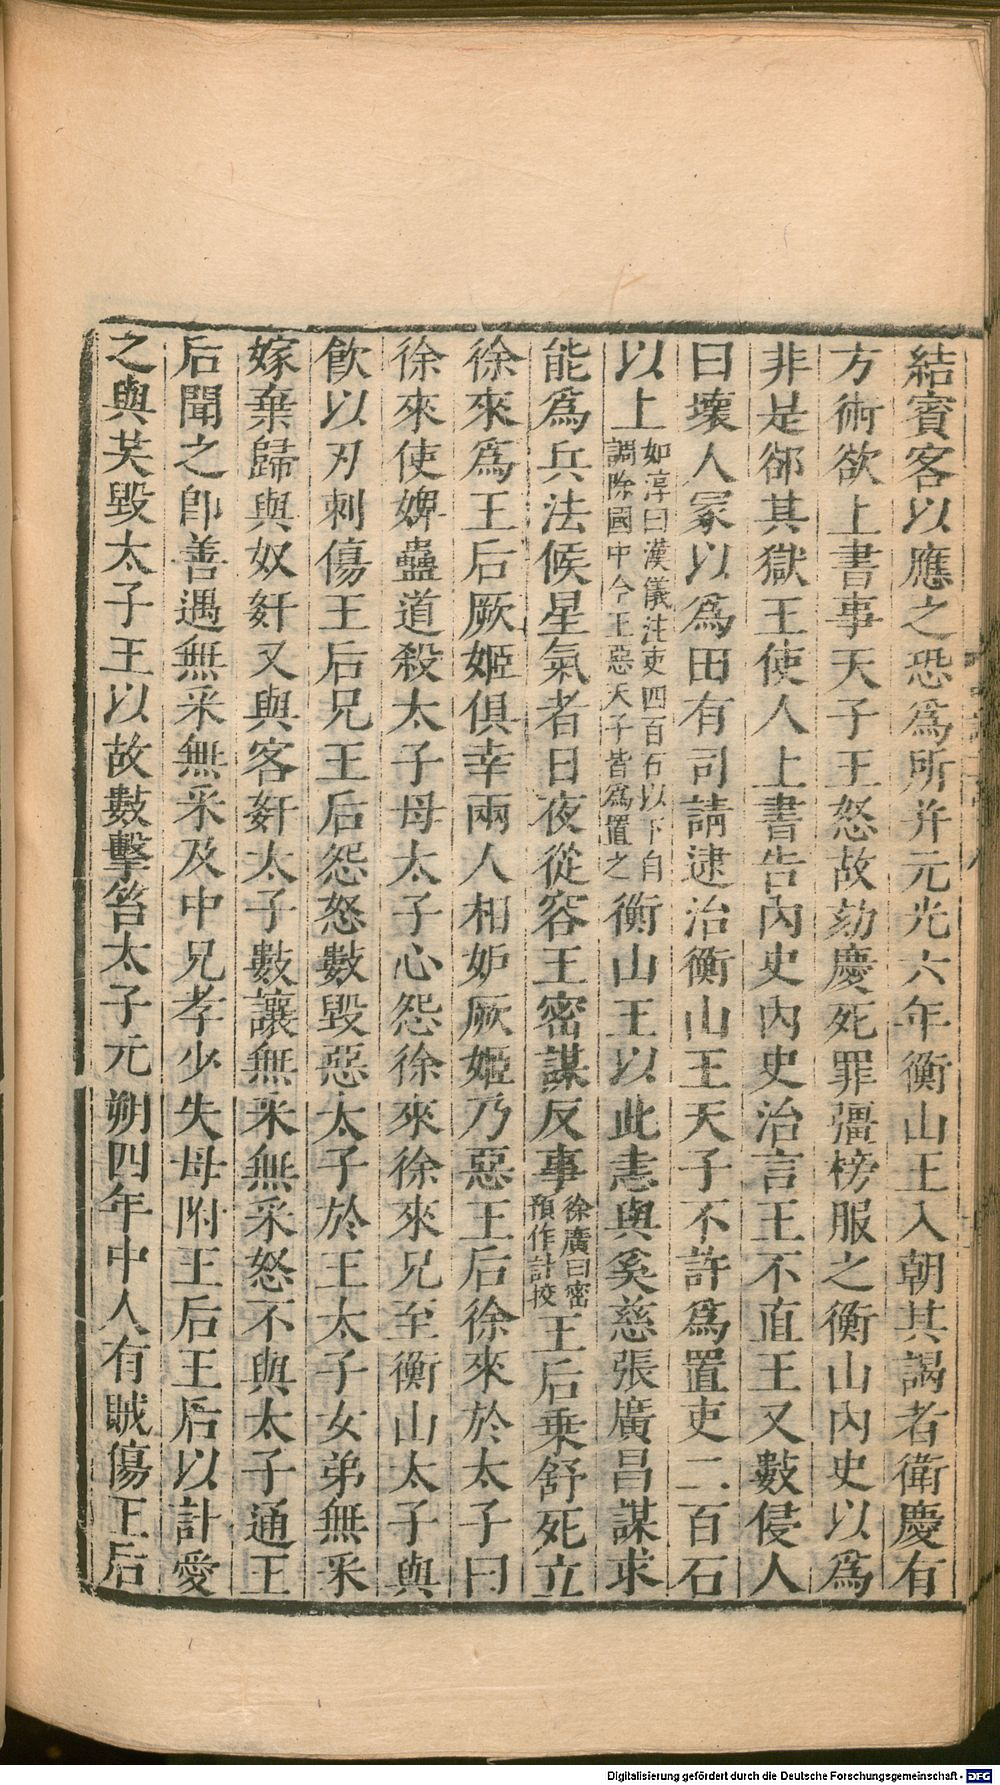 結賓客以應之恐爲所并元光六年衡山王入朝其謁者衛慶有
方術欲上書事天子王怒故劾慶死罪彊榜服之衡山內史以爲
非是郤其獄王使人上書告內史內史治言王不直王又數侵人
田壞人冢以爲田有司請逮治衡山王天子不許爲置吏二百石
以上如淳曰漢儀注吏四百石以下自調除國中今王惡天子皆爲置之衡山王以此恚與奚慈張廣昌謀求
能爲兵法候星氣者日夜從容王密謀反事徐廣曰密預作計校王后乗舒死立
徐來爲王后厥姬俱幸兩人相妒厥姬乃惡王后徐來於太子曰
徐來使婢蠱道殺太子母太子心怨徐來徐來兄至衡山太子與
飮以刃刺傷王后兄王后怨怒數毀惡太子於王太子女弟無采
嫁棄歸與奴奸又與客奸太子數讓無采無采怒不與太子通王
后聞之卽善遇無采無采及中兄孝少失母附王后王后以計愛
之與共毀太子王以故數擊笞太子元朔四年中人有賊傷王后
Digitalisierung gefördert durch die Deutsche Forschungsgemeinschaft - DFG